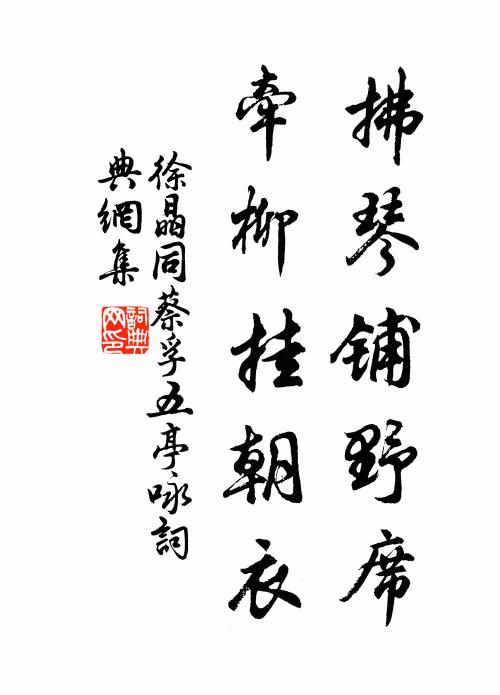 拂琴鋪野席
牽柳挂朝衣
徐晶同蔡孚五亭咏詞
典網集
詞典
网印